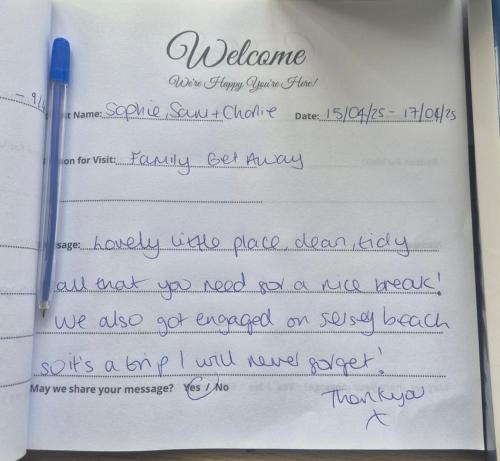 Welcome
We're Happy You're Here!
Name: Sophie, Sam + Charlie Date: 15/04/25 - 17/04/25
on for Visit: Family Get Away
sage: Lovely little place, clean, tidy
all that you need for a nice break!
We also got engaged on selsey beach
so it's a trip I will never forget!
May we share your message? Yes / No
Thankyou
x